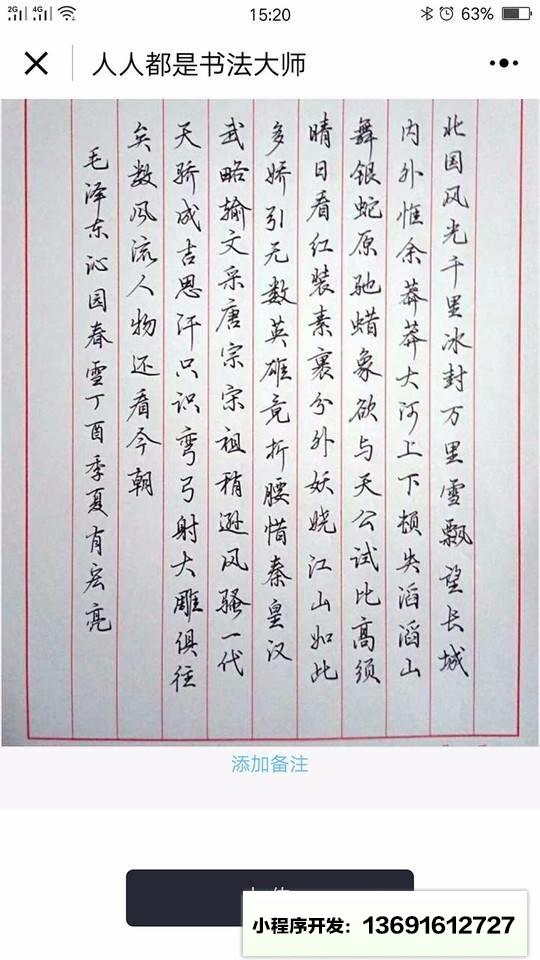 2G 4G 15:20 63%
人人都是书法大师
北国风光千里冰封万里雪飘望长城
内外惟余莽莽大河上下顿失滔滔山
舞银蛇原驰蜡象欲与天公试比高须
晴日看红装素裹分外妖娆江山如此
多娇引无数英雄竞折腰惜秦皇汉
武略输文采唐宗宋祖稍逊风骚一代
天骄成吉思汗只识弯弓射大雕俱往
矣数风流人物还看今朝
毛泽东沁园春雪丁酉季夏宏亮
添加备注
小程序开发：13691612727